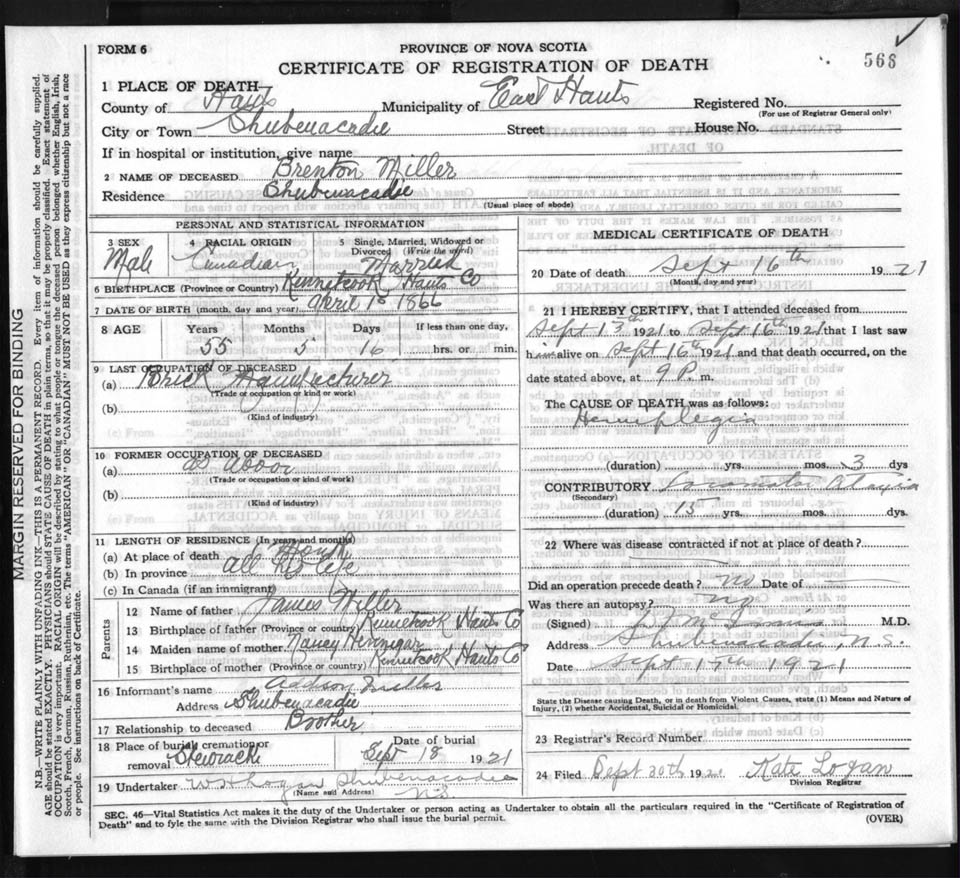 FORM 6
PROVINCE OF NOVA SCOTIA
566
CERTIFICATE OF REGISTRATION OF DEATH
1 PLACE OF DEATH—
County of Hants Municipality of East Hants Registered No.
(For use of Registrar General only)
City or Town Shubenacadie Street House No.
If in hospital or institution, give name
2 NAME OF DECEASED Brenton Miller
Residence Shubenacadie
(Usual place of abode)
PERSONAL AND STATISTICAL INFORMATION
3 SEX 4 RACIAL ORIGIN 5 Single, Married, Widowed or Divorced (Write the word)
Male Canadian Married
6 BIRTHPLACE (Province or Country) Kennetcook Hants Co
7 DATE OF BIRTH (month, day and year) April 1st 1866
8 AGE Years Months Days If less than one day,
55 5 16 hrs. or min.
9 LAST OCCUPATION OF DECEASED
(a) Brick Manufacturer
(Trade or occupation or kind or work)
(b)
(Kind of industry)
10 FORMER OCCUPATION OF DECEASED
(a) as above
(Trade or occupation or kind of work)
(b)
(Kind of industry)
11 LENGTH OF RESIDENCE (In years and months)
(a) At place of death Month
(b) In province all his life
(c) In Canada (if an immigrant)
Parents
12 Name of father James Miller
13 Birthplace of father (Province or country) Kennetcook Hants Co
14 Maiden name of mother Nancy Hennigar
15 Birthplace of mother (Province or country) Kennetcook Hants Co
16 Informant's name Addison Miller
Address Shubenacadie
17 Relationship to deceased Brother
18 Place of burial cremation or removal Stewiacke Date of burial Sept 18 1921
19 Undertaker W H Logan Shubenacadie NS
(Name and Address)
MEDICAL CERTIFICATE OF DEATH
20 Date of death Sept 16th 1921
(Month, day and year)
21 I HEREBY CERTIFY, that I attended deceased from
Sept 13th 1921 to Sept 16th 1921 that I last saw
him alive on Sept 16th 1921 and that death occurred, on the
date stated above, at 9 P. m.
The CAUSE OF DEATH was as follows:
Hemiplegia
(duration) yrs. mos. 3 dys
CONTRIBUTORY Locomotor Ataxia
(Secondary)
(duration) 15 yrs. mos. dys.
22 Where was disease contracted if not at place of death?
Did an operation precede death? no Date of
Was there an autopsy? no
(Signed) M.D.
Address Shubenacadie, N.S.
Date Sept 17th 1921
State the Disease causing Death, or in death from Violent Causes, state (1) Means and Nature of
Injury, (2) whether Accidental, Suicidal or Homicidal.
23 Registrar's Record Number
24 Filed Sept 30th 1921 Kate Logan
Division Registrar
SEC. 46—Vital Statistics Act makes it the duty of the Undertaker or person acting as Undertaker to obtain all the particulars required in the "Certificate of Registration of
Death" and to fyle the same with the Division Registrar who shall issue the burial permit.
(OVER)
MARGIN RESERVED FOR BINDING
N.B.—WRITE PLAINLY WITH UNFADING INK—THIS IS A PERMANENT RECORD. Every item of information should be carefully supplied.
AGE should be stated EXACTLY. PHYSICIANS should STATE CAUSE OF DEATH in plain terms, so that it may be properly classified. Exact statement of
OCCUPATION is very important. RACIAL ORIGIN will be described by stating to what people or tongue the deceased person belonged whether English, Irish,
Scotch, French, German, Russian, Ruthenian, etc. The terms "AMERICAN" or "CANADIAN" MUST NOT BE USED as they express citizenship but not a race
or people. See instructions on back of Certificate.